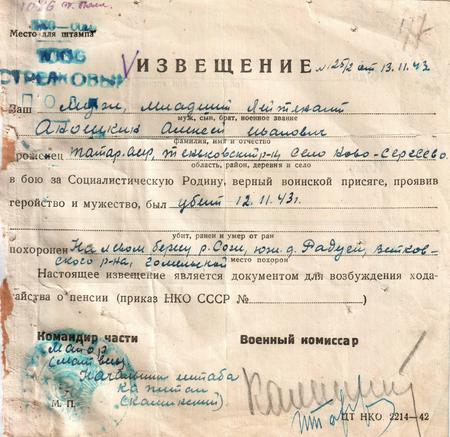 1006 п. Полк
Место для штампа
1006
СТРЕЛКОВЫЙ
ПО
ИЗВЕЩЕНИЕ № 25/2 от 13.11.43
Ваш Муж, младший лейтенант
муж, сын, брат, военное звание
Алексей Иванович
фамилия, имя и отчество
роженец Татар. АССР, Теньковский р-н, село Ково-Сергеево.
область, район, деревня и село
в бою за Социалистическую Родину, верный воинской присяге, проявив
геройство и мужество, был убит 12.11.43г.
убит, ранен и умер от ран
похоронен На левом берегу р. Сож, юж. д. Радуга, Ветков-
ского р-на, Гомельской
место похорон
Настоящее извещение является документом для возбуждения хода-
тайства о пенсии (приказ НКО СССР №
Командир части
Военный комиссар
Майор
(Матвеев)
Начальник штаба
капитан
(Калинский)
М. П.
ЦТ НКО 2214—42